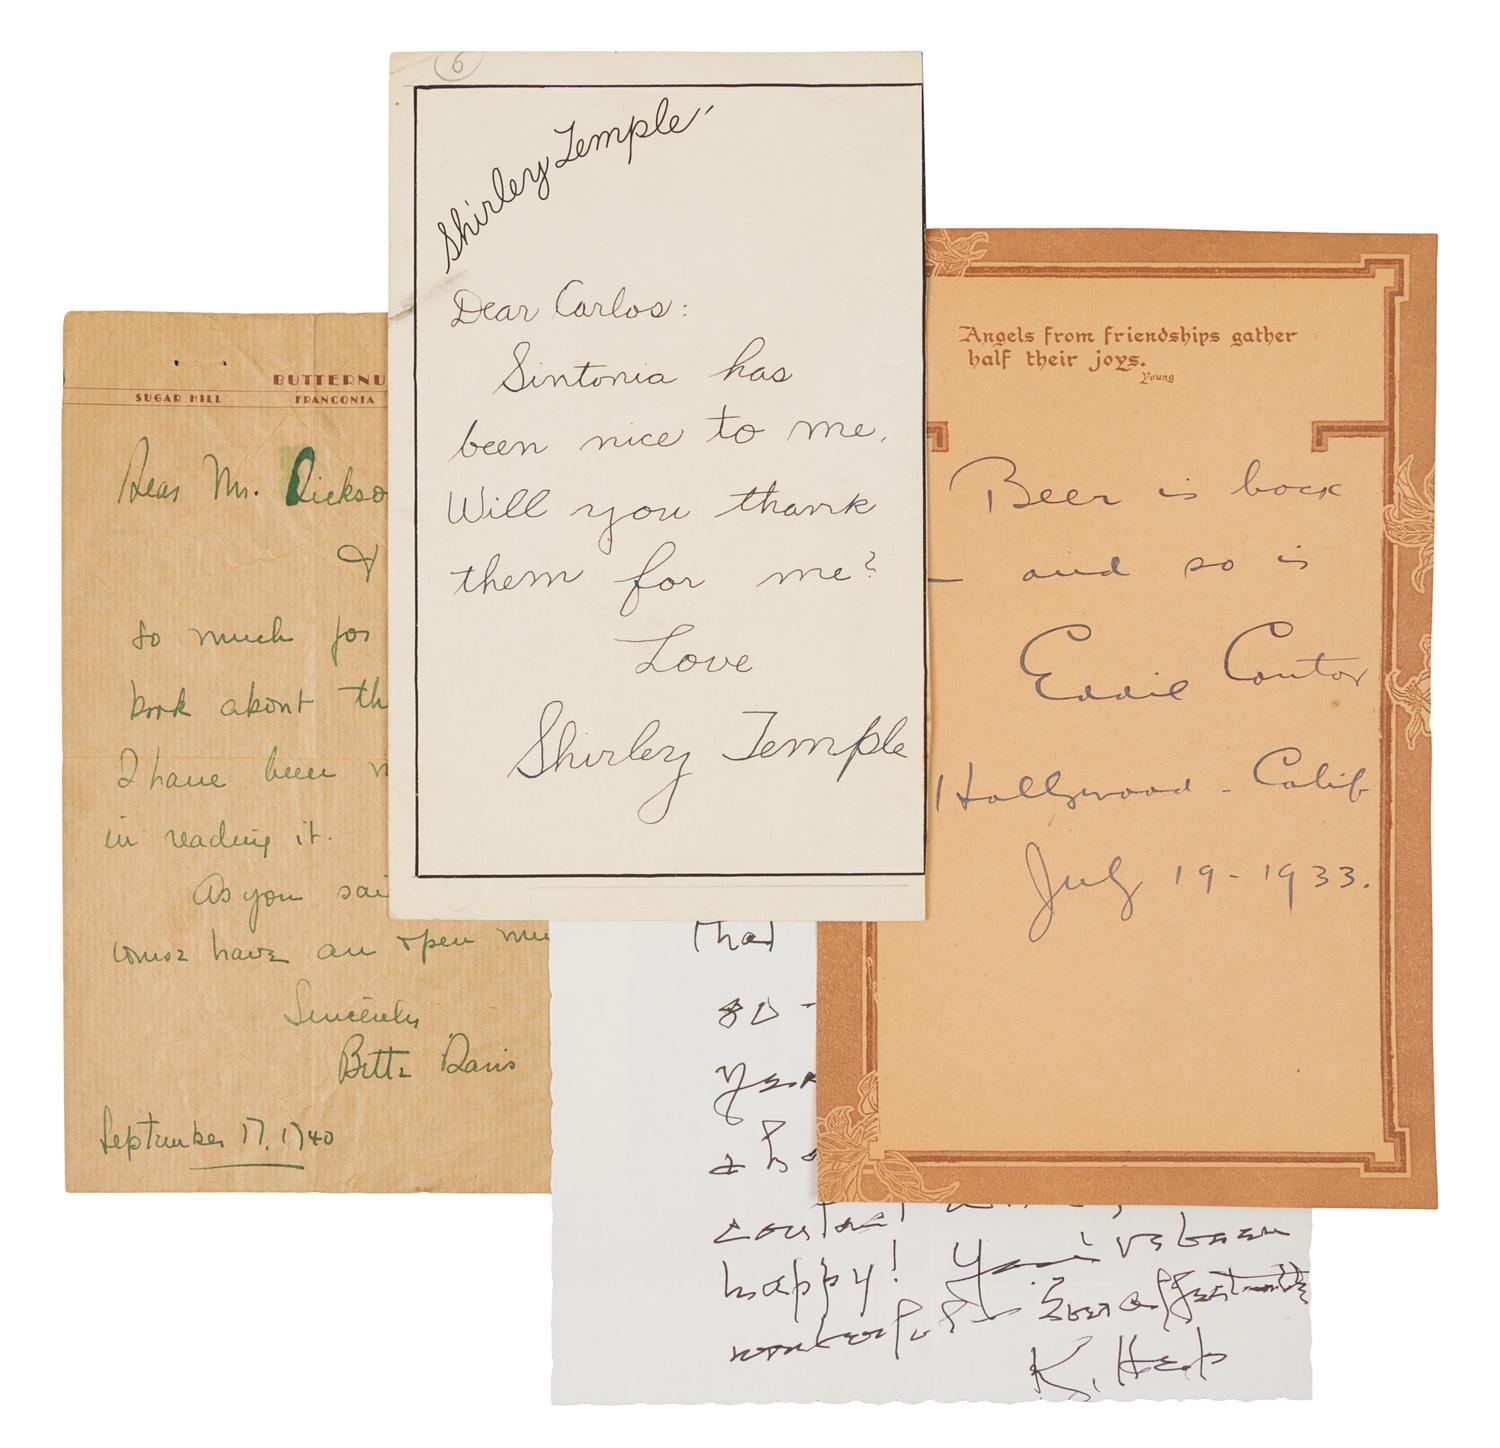 6
Shirley Temple
Dear Carlos:
Sintonia has
been nice to me.
Will you thank
them for me?
Love
Shirley Temple
BUTTERNU
SUGAR HILL FRANCONIA
Dear Mr. Dickso
so much for
book about th
I have been
in reading it.
As you sai
have an open
Sincerely
Bette Davis
September 17, 1940
Angels from friendships gather
half their joys.
Young
Beer is back
— and so is
Eddie Cantor
Hollywood - Calif
July 19 - 1933.
that
so -
contact
happy! You've been
wonderful - Ever affectionately
K. Hep